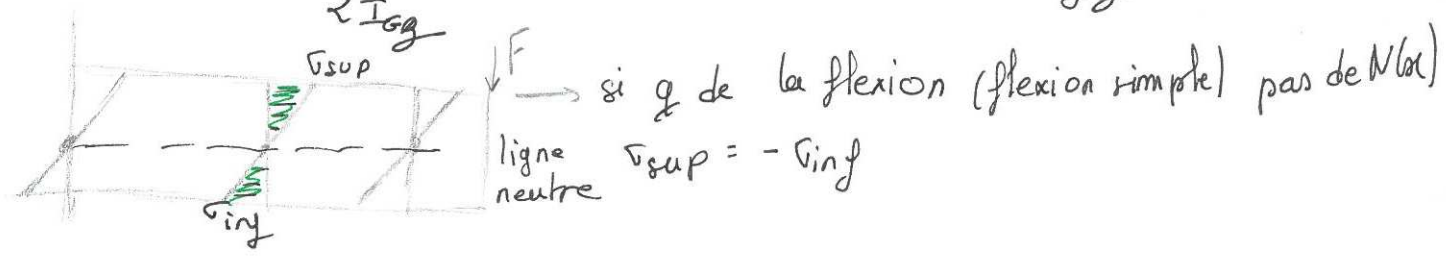 2 I_Gz
σsup
↓F
→ si q de la flexion (flexion simple) pas de N(x)
ligne neutre
σsup = - σinf
σinf